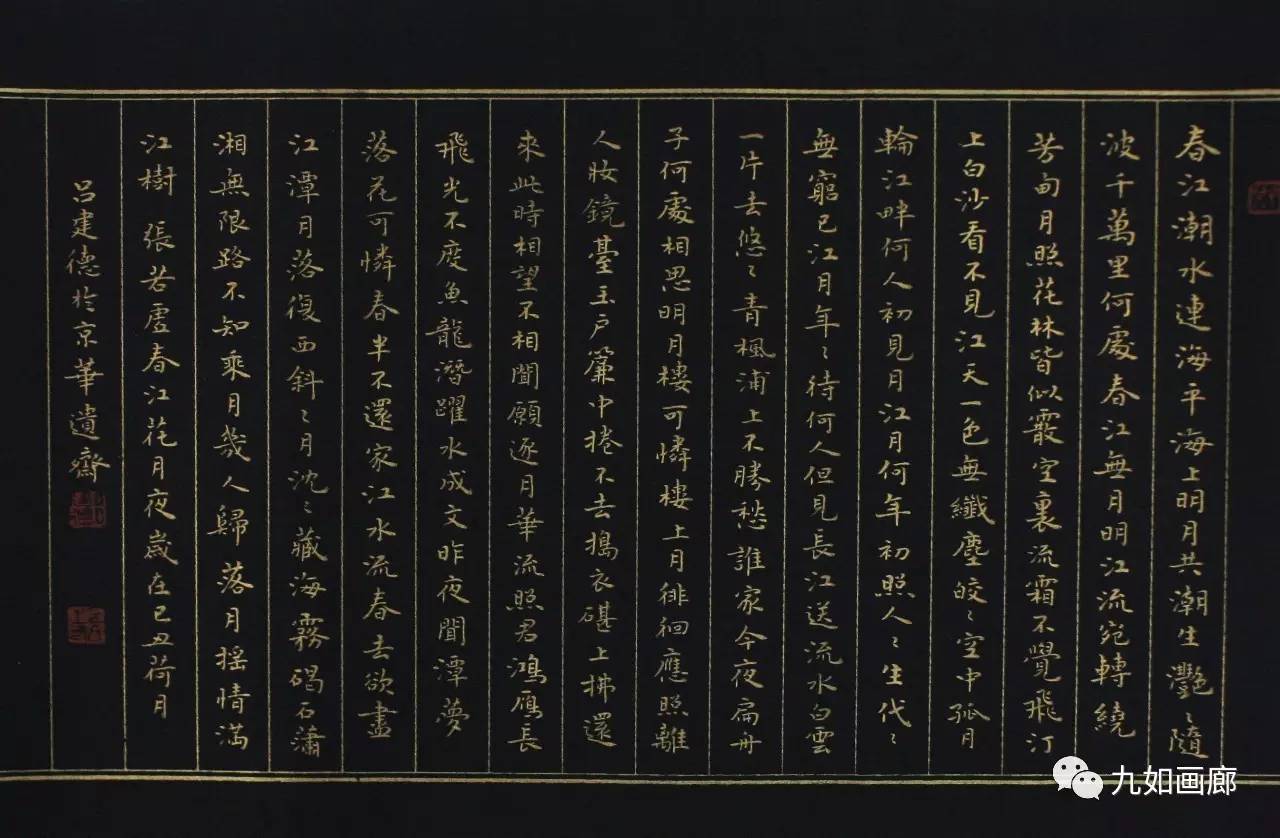 春江潮水連海平海上明月共潮生灧〻隨
波千萬里何處春江無月明江流宛轉繞
芳甸月照花林皆似霰空裏流霜不覺飛汀
上白沙看不見江天一色無纖塵皎〻空中孤月
輪江畔何人初見月江月何年初照人〻生代〻
無窮已江月年〻待何人但見長江送流水白雲
一片去悠〻青楓浦上不勝愁誰家今夜扁舟
子何處相思明月樓可憐樓上月徘徊應照離
人妝鏡臺玉戶簾中捲不去搗衣碪上拂還
來此時相望不相聞願逐月華流照君鴻雁長
飛光不度魚龍潛躍水成文昨夜聞潭夢
落花可憐春半不還家江水流春去欲盡
江潭月落復西斜〻月沈〻藏海霧碣石瀟
湘無限路不知乘月幾人歸落月搖情滿
江樹 張若虛春江花月夜歲在己丑荷月
呂建德於京華遺齋
九如画廊